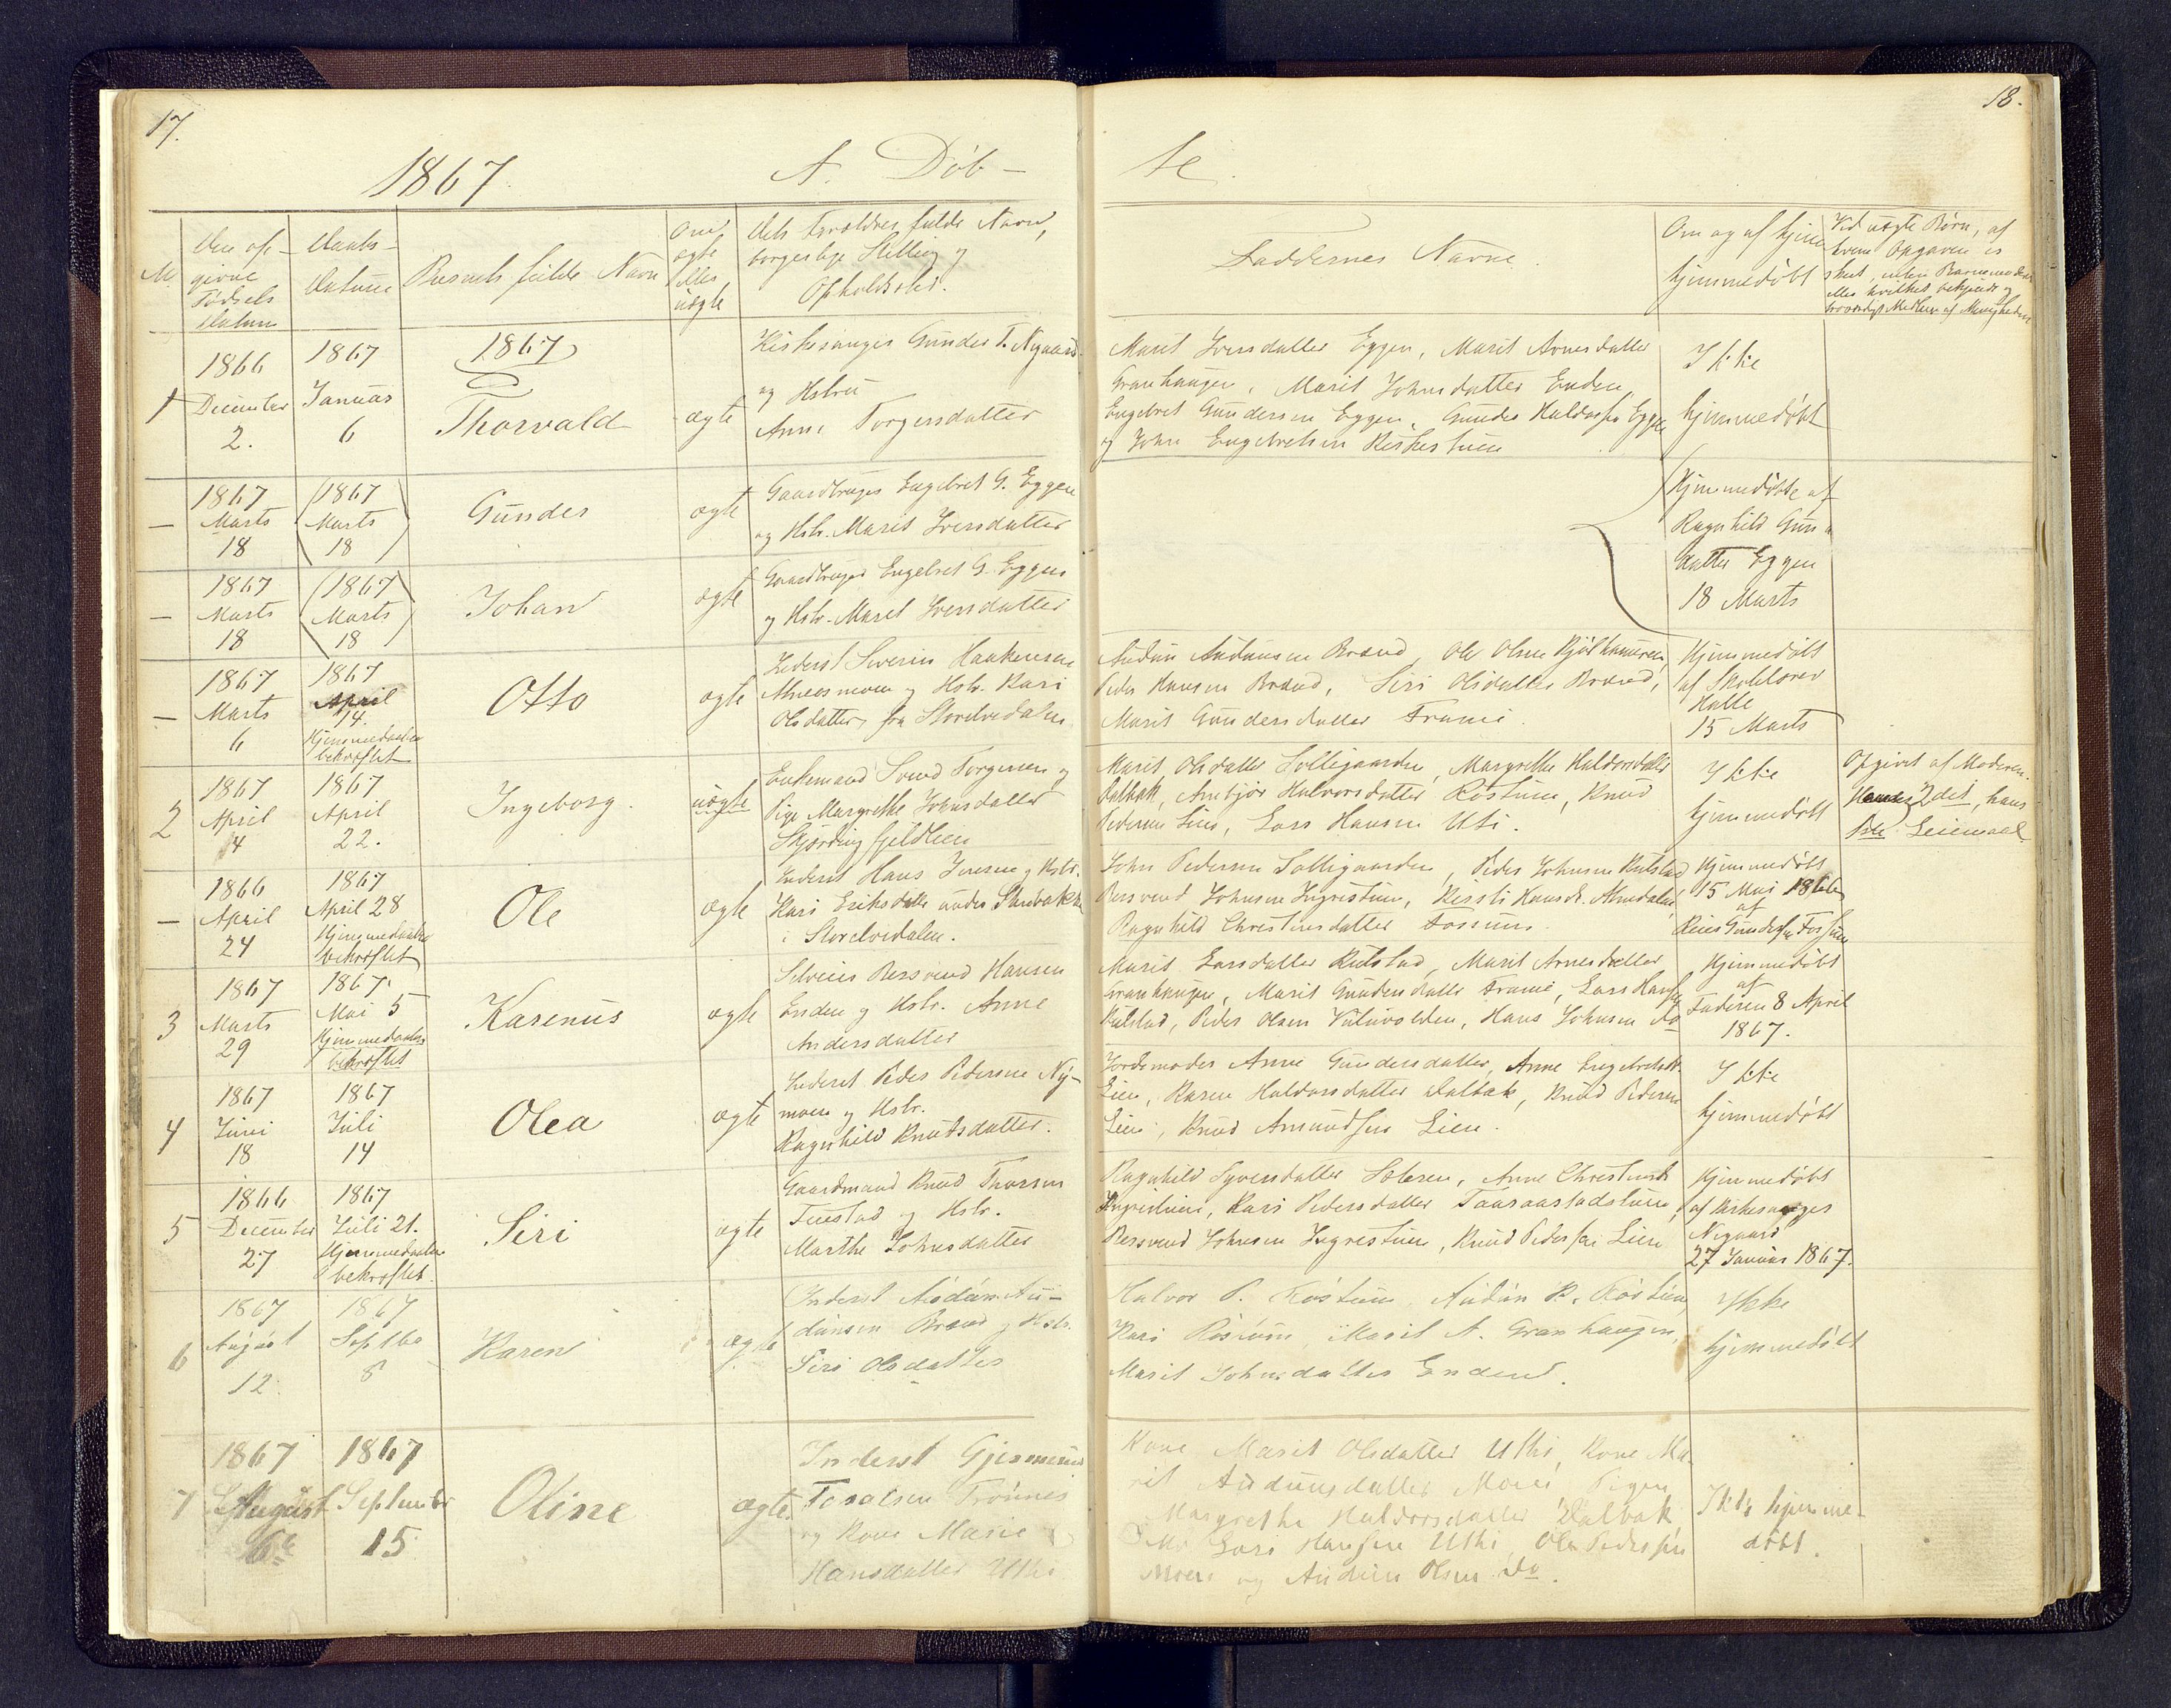 17.
1867
A. Döb-
Den op-
givne
Födsels
Datum
Daabs-
Datum
Barnets fulde Navn
Om
ægte
eller
uægte
Dets Forældres fulde Navn,
borgerlige Stilling og
Opholdssted.
1
1866
December
2.
1867
Januar
6
1867
Thorvald
ægte
Kirkesanger Gunder T. Nygaard
og Hstru
Anne Torgersdatter
–
1867
Marts
18
(1867
Marts
18)
Gunder
ægte
Gaardbruger Engebret G. Eggen
og Hstr. Marit Iversdatter
–
1867
Marts
18
(1867
Marts
18)
Johan
ægte
Gaardbruger Engebret G. Eggen
og Hstr. Marit Iversdatter
–
1867
Marts
6
1867
April
14.
Hjemmedaaben
bekræftet
Otto
ægte
Inderst Severin Haakensen
moen og Hstr. Kari
Olsdatter, fra Storelvedalen
2
1867
April
4
1867
April
22.
Ingeborg.
uægte
Enkemand Svend Torgersen og
Pige Margrethe Johnsdatter
Skjærdingfjeldlien
–
1866
April
24
1867
April 28
Hjemmedaaben
bekræftet
Ole
ægte
Inderst Hans Iversen og Hstr.
Kari Eriksdatter under
i Storelvedalen.
3
1867
Marts
29
1867.
Mai 5
Hjemmedaaben
bekræftet
Karenus
ægte
Selveier Bersvend Hansen
Enden og Hstr. Anne
Andersdatter
4
1867
Juni
18
1867
Juli
14
Olea
ægte
Inderst Peder Pedersen Ny-
moen og Hstr.
Ragnhild Knudsdatter.
5
1866
December
27
1867
Juli 21.
Hjemmedaaben
bekræftet.
Siri
ægte
Gaardmand Knud Thorsen
og Hstr.
Marthe Johnsdatter
6
1867
August
12.
1867
Septbr
8
Karen
ægte
Inderst Audun Au-
dunsen Brænd og Hstr.
Siri Olsdatter
7
1867
August
6te
1867
September
15
Oline
ægte.
Inderst Gjermund
Trønnes
og Kone Marie
Hansdatter Uthi
18.
te.
Faddernes Navne.
Om og af hjem
hjemmedöbt
Ved uægte Børn, af
hvem Opgaven er
skeet, uden Barnemoderen
eller hvilket bekjendt og
troværdigt Medlem af Menigheden
Marit Iversdatter Eggen, Marit Arnesdatter
Granhaugen, Marit Johnsdatter Enden,
Engebret Gundersen Eggen, Gunder Haldorsen Eggen
og John Engebretsen Kirkestuen
Ikke
hjemmedöbt
Hjemmedöbte af
Ragnhild Gun-
datter Eggen
18 Marts
Audun Audunsen Brænd, Ole Olsen Kjølhamaren,
Peder Hansen Brænd, Siri Olsdatter Brænd,
Marit Gundersdatter
Hjemmedöbt
af Skolelærer
Halle
15 Marts
Marit Olsdatter Solliegaarden, Margrethe Haldorsdatter
Dalbak, Halvorsdatter Røstuen, Knud
Pedersen Lien, Lars Hansen Uti.
Ikke
hjemmedöbt
Opgivet af Moderen.
Hendes 2det, hans
1ste Leiermaal
John Pedersen Solligaarden, Peder Johnsen Kulstad
Bersvend Johnsen Ingrestuen, Kirsti Hansdt.
Ragnhild Christensdatter Fossum.
Hjemmedöbt
15 Mai 1866
af
Reier Gundersen Fossum
Marit Larsdatter Kulstad, Marit Arnesdatter
Granhaugen, Marit Gundersdatter Lars Hansen
Kulstad, Peder Olsen Hans Johnsen Do
Hjemmedöbt
af
Faderen 8 April
1867.
Jordemoder Anne Gundersdatter, Anne Engebretsdt.
Lien, Karen Haldorsdatter Dalbak, Knud Pedersen
Lien, Knud Amundsen Lien.
Ikke
hjemmedöbt
Ragnhild Syversdatter Anne Christensdt.
Ingrestuen, Kari Pedersdatter
Bersvend Johnsen Ingrestuen, Knud Pedersen Lien
Hjemmedöbt
af Kirkesanger
Nygaard
27 Januar 1867.
Halvor P. Röstuen, Audun P. Röstuen,
Kari Röstuen, Marit A. Granhaugen,
Marit Johnsdatter Enden.
Ikke
hjemmedöbt
Kone Marit Olsdatter Uthi, Kone Ma-
rit Audunsdatter Moen, Pigen
Margrethe Haldorsdatter Dalbak
Lars Hansen Uthi, Ole Pedersen
Moen og Audun Olsen Do.
Ikke hjemme-
döbt.